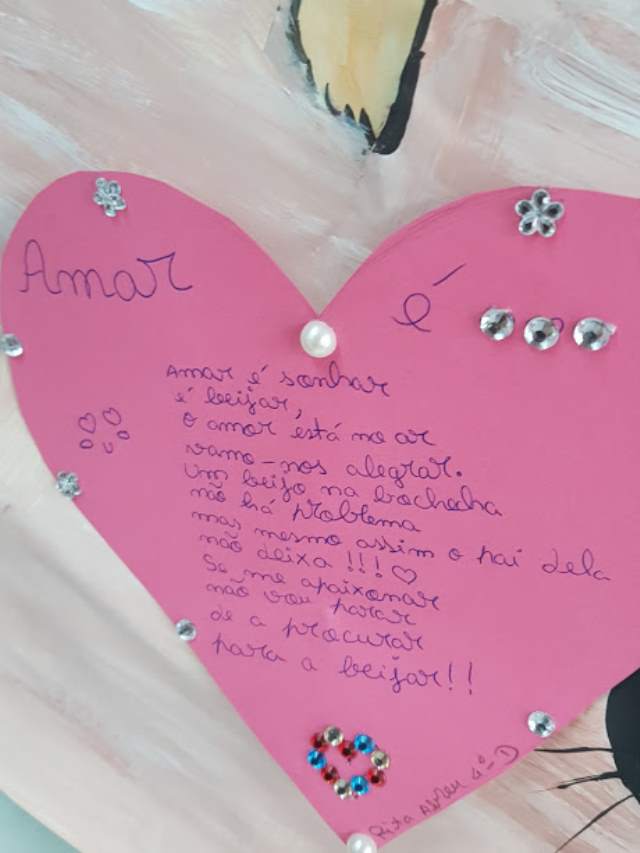 Amar é
Amar é sonhar
é beijar,
o amor está no ar
vamo-nos alegrar.
Um beijo na bochecha
não há problema
mas mesmo assim o pai dela
não deixa !!! ♡
Se me apaixonar
não vou parar
de a procurar
para a beijar!!
Rita Abreu 4º D